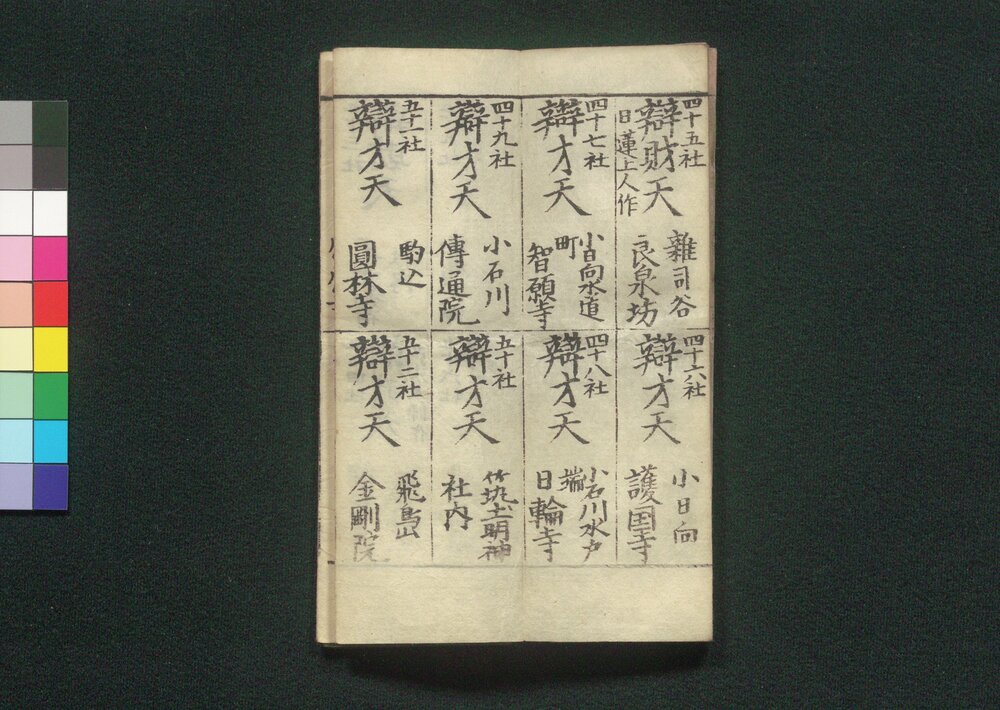 四十五社
辯財天
日蓮上人作
雜司谷
良泉坊
四十六社
辯才天
小日向
護国寺
四十七社
辯才天
小日向水道
町
智願寺
四十八社
辯才天
小石川水戸
端
日輪寺
四十九社
辯才天
小石川
傳通院
五十社
辯才天
竹筑土明神
社内
五十一社
辯才天
駒込
圓林寺
五十二社
辯才天
飛鳥山
金剛院